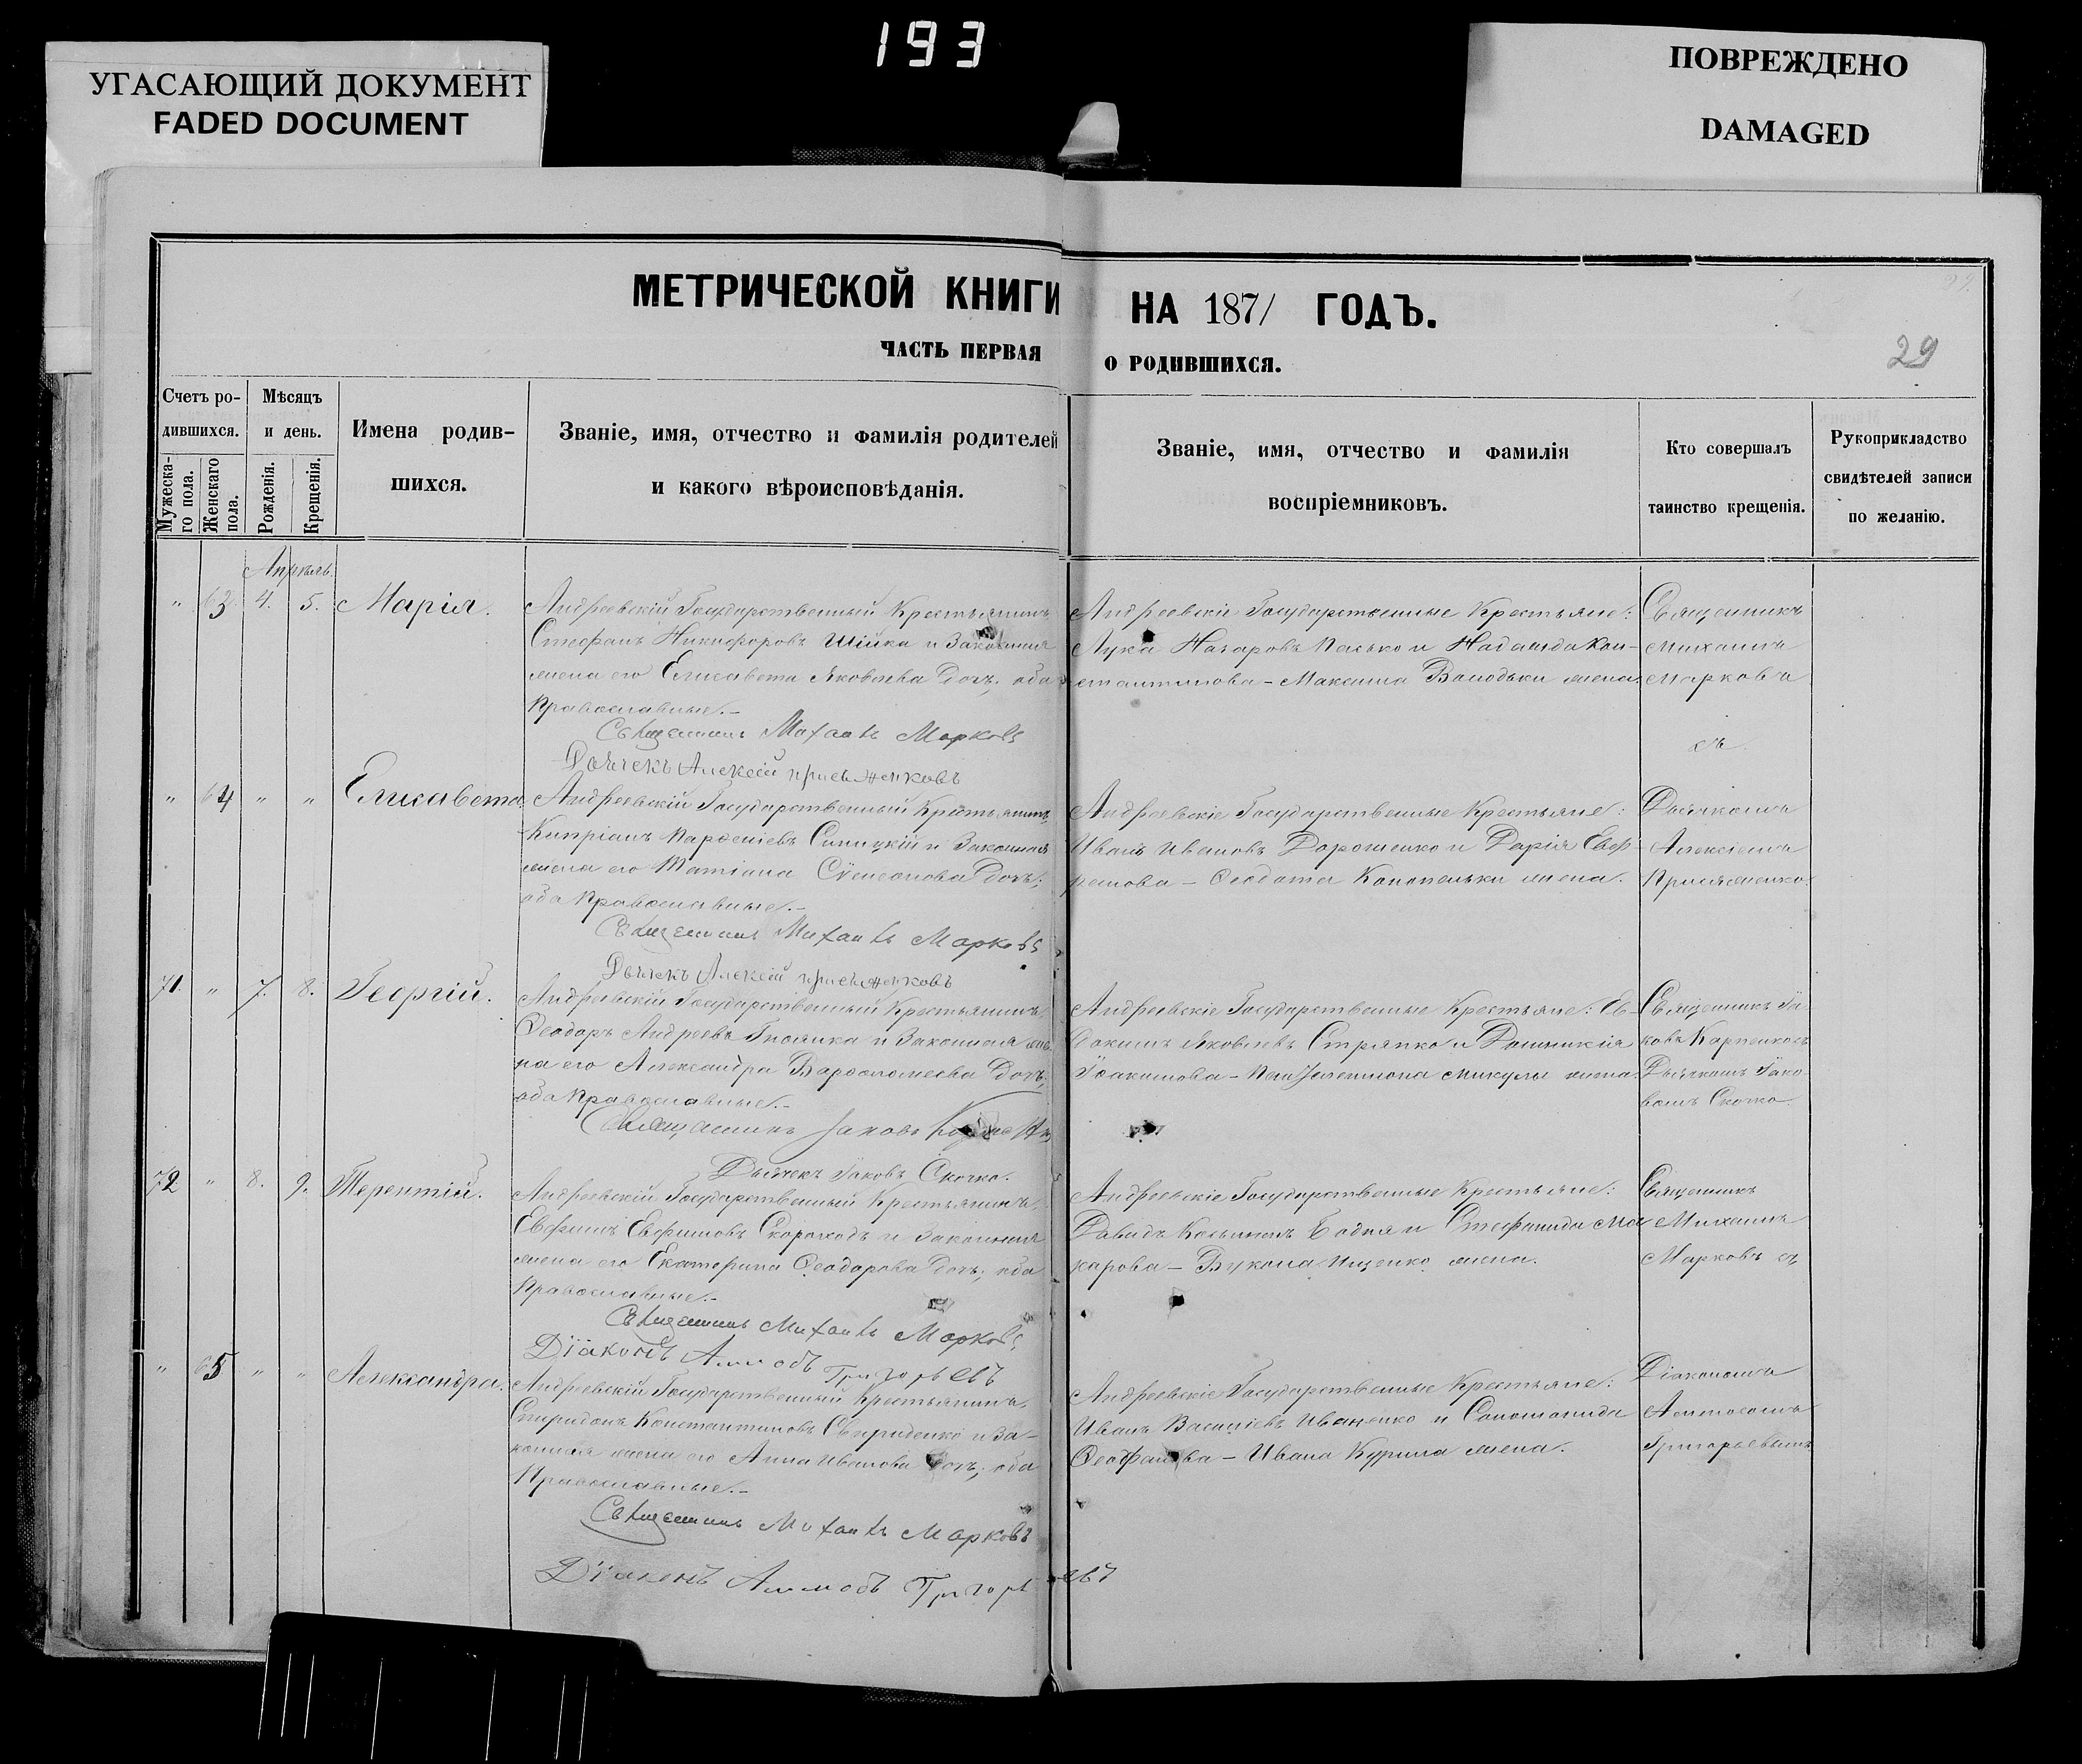 193
УГАСАЮЩИЙ ДОКУМЕНТ
FADED DOCUMENT
ПОВРЕЖДЕНО
DAMAGED
МЕТРИЧЕСКОЙ КНИГИ НА 1871 ГОДЪ.
ЧАСТЬ ПЕРВАЯ О РОДИВШИХСЯ.
29
Счетъ ро-
дившихся.
Мужеска-
го пола.
Женскаго
пола.
Мѣсяцъ
и день.
Рожденія.
Крещенія.
Имена родив-
шихся.
Званіе, имя, отчество и фамилія родителей
и какого вѣроисповѣданія.
Званіе, имя, отчество и фамилія
воспріемниковъ.
Кто совершалъ
таинство крещенія.
Рукоприкладство
свидѣтелей записи
по желанію.
Апрѣль
" 63 4. 5. Марія.
Андреевскій Государственный Крестьянинъ
Стефанъ Никифоровъ Шійка и Законная
жена его Елисавета Яковлева дочь; оба
Православные.-
Священникъ Михаилъ Марковъ
Дьячекъ Алексій
Андреевскіе Государственные Крестьяне:
Лука Назаровъ Пасько и Надежда Кон-
стантинова - Максима Володьки жена.
Священникъ
Михаилъ
Марковъ
съ
" 64 " " Елисавета
Андреевскій Государственный Крестьянинъ
Кипріанъ Парѳеніевъ Синицкій и Законная
жена его Татіана Сѵмеонова дочь;
оба Православные.-
Священникъ Михаилъ Марковъ
Дьячекъ Алексій
Андреевскіе Государственные Крестьяне:
Иванъ Ивановъ Дорошенко и Дарія Евф-
ремова - Ѳеодота Конопельки жена.
Дьячкомъ
Алексіемъ
71. " 7. 8. Георгій.
Андреевскій Государственный Крестьянинъ
Ѳеодоръ Андреевъ Гнолика и Законная же-
на его Александра Варѳоломеева дочь;
оба Православные.-
Священникъ Іаковъ
Дьячекъ Іаковъ Скочко.
Андреевскіе Государственные Крестьяне: Ев-
докимъ Яковлевъ Стряпко и Домникія
Іоакимова - Пантелеимона Микулы жена.
Священникъ Іа-
ковъ Карпенко съ
Дьячкомъ Іако-
вомъ Скочко
72 " 8. 9. Терентій.
Андреевскій Государственный Крестьянинъ
Евфимъ Евфимовъ Скороходъ и Законная
жена его Екатерина Ѳеодорова дочь; оба
Православные.-
Священникъ Михаилъ Марковъ
Діаконъ Григорьевъ
Андреевскіе Государственные Крестьяне:
Давидъ Косьминъ Бодня и Стефанида Ма-
карова - Вукола Ищенко жена.
Священникъ
Михаилъ
Марковъ съ
" 65 " " Александра.
Андреевскій Государственный Крестьянинъ
Спиридонъ Константиновъ Свириденко и За-
конная жена его Анна Иванова дочь; оба
Православные.-
Священникъ Михаилъ Марковъ
Діаконъ Григорьевъ
Андреевскіе Государственные Крестьяне:
Иванъ Василіевъ Иваненко и Соломонида
Ѳеофанова - Ивана Курила жена.
Діакономъ
Григорьевымъ